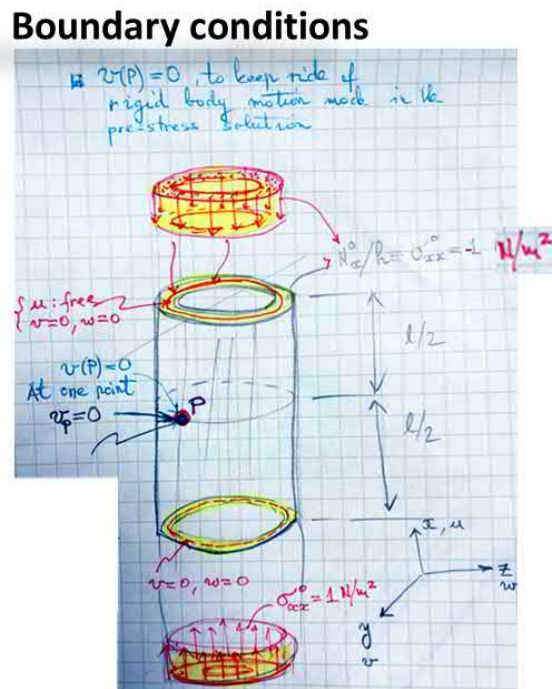 Boundary conditions
v(P)=0, to keep ride of
rigid body motion mode in the
pre-stress solution
N°x/h = σ°xx = -1 N/m²
{ u: free
v=0, w=0
l/2
v(P)=0
At one point
P
vp=0
l/2
x, u
z
w
y
v
v=0, w=0
σ°xx = 1 N/m²